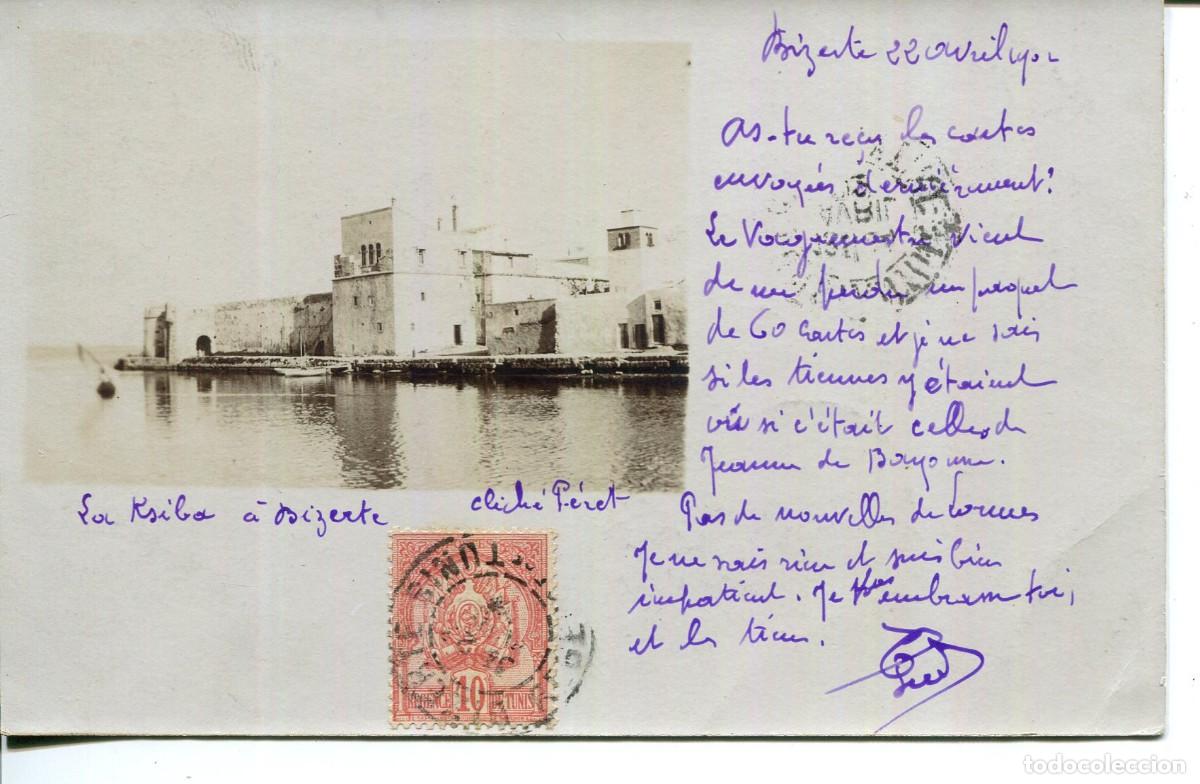 Bizerte 22 avril 1902
As-tu reçu les cartes
envoyées dernièrement?
Le Vaguemestre vient
de me perdre un paquet
de 60 cartes et je ne sais
si les tiennes y étaient
ou si c'était celles de
Jeanne de Bayonne.
Pas de nouvelles de
Je ne sais rien et suis bien
impatient. Je vous embrasse toi,
et les tiens.
La Ksiba à Bizerte
cliché Péret
10
REGENCE DE TUNIS
todocoleccion